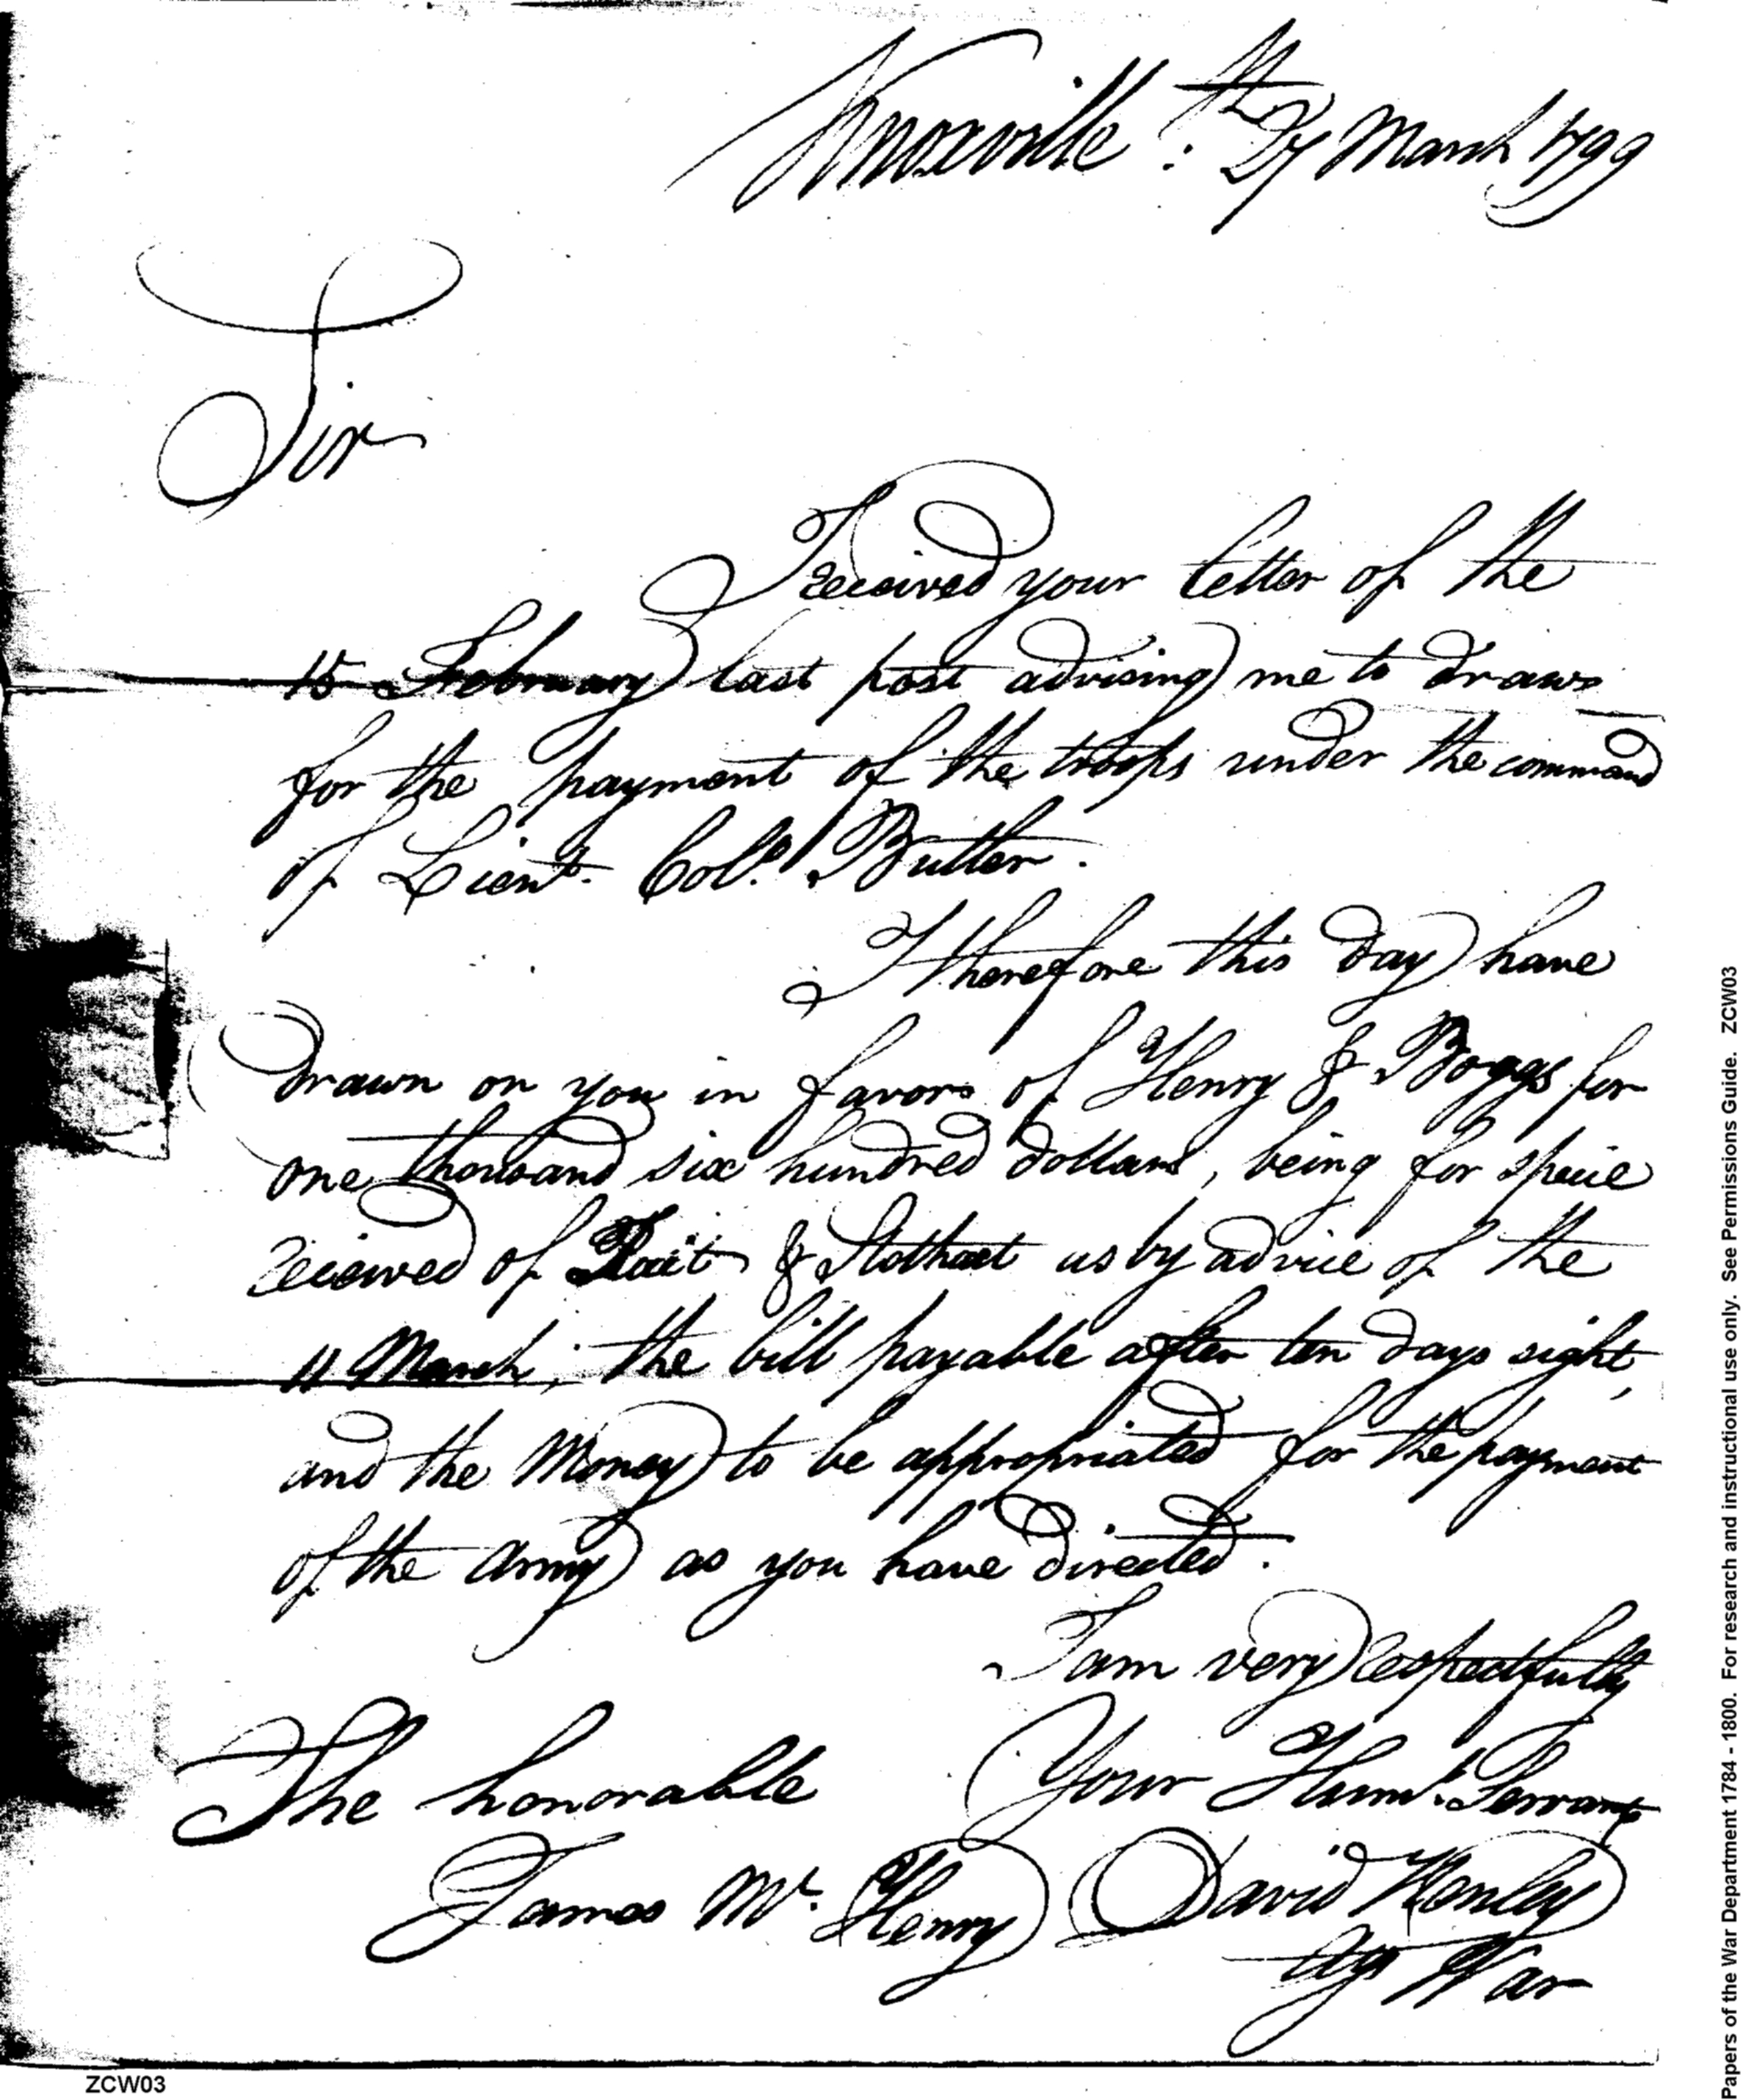 Knoxville: 27th March 1799
Sir
I received your letter of the
15 February last post advising me to draw
for the payment of the troops under the command
of Lieut. Coll. Butler.
I therefore this day have
drawn on you in favor of Henry & Boggs for
one thousand six hundred dollars, being for specie
received of Tait & Stothart as by advice of the
11 March; the bill payable after ten days sight,
and the Money to be appropriated for the payment
of the army as you have directed.
I am very respectfully
Your Huml. Servant
The honorable
James Mc. Henry
David Henley
Agt War
ZCW03
Papers of the War Department 1784 - 1800. For research and instructional use only. See Permissions Guide. ZCW03